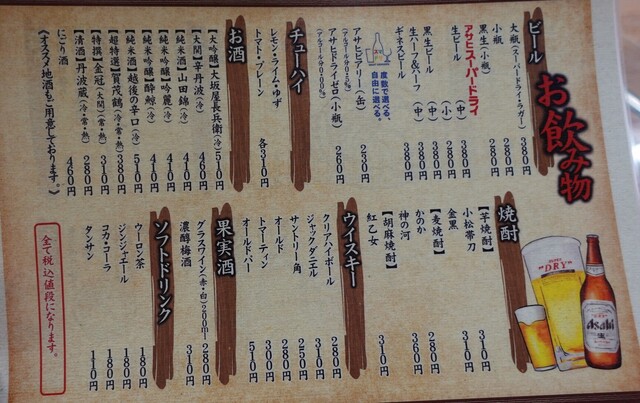 お飲み物
ビール
大瓶(スーパードライ・ラガー) 380円
小瓶 280円
黒生(小瓶) 280円
アサヒスーパードライ
生ビール (中) 380円
(小) 250円
黒生ビール (中) 380円
生ハーフ&ハーフ (中) 380円
ギネスビール 380円
度数で選べる、
自由に選べる。
アサヒビアリー(缶) 230円
(アルコール分0.5%)
アサヒドライゼロ(小瓶) 260円
(アルコール分0.00%)
チューハイ
レモン・ライム・ゆず
トマト・プレーン 各310円
お酒
【大吟醸】大坂屋長兵衛(冷) 510円
【大関】辛丹波(冷) 480円
【純米酒】山田錦(冷) 410円
【純米吟醸】吟麗(冷) 410円
【純米吟醸】酔鯨(冷) 410円
【純米酒】越後の辛口(冷) 510円
【超特選】賀茂鶴(冷・常・熱) 380円
【特撰】金冠(大関)(常・熱) 310円
【清酒】丹波蔵(冷・常・熱) 280円
にごり酒 460円
《オススメ地酒もご用意しております。》
焼酎
【芋焼酎】
小松帯刀 310円
金黒 310円
【麦焼酎】
かのか 280円
神の河 360円
【胡麻焼酎】
紅乙女 310円
ウイスキー
クリアハイボール 280円
ジャックダニエル 310円
サントリー角 250円
オールド 280円
トマーティン 300円
オールドパー 510円
果実酒
グラスワイン(赤・白)200ml 280円
濃醇梅酒 310円
ソフトドリンク
ウーロン茶 180円
ジンジャエール 180円
コカ・コーラ 180円
タンサン 110円
全て税込値段になります。
"DRY"
Asahi